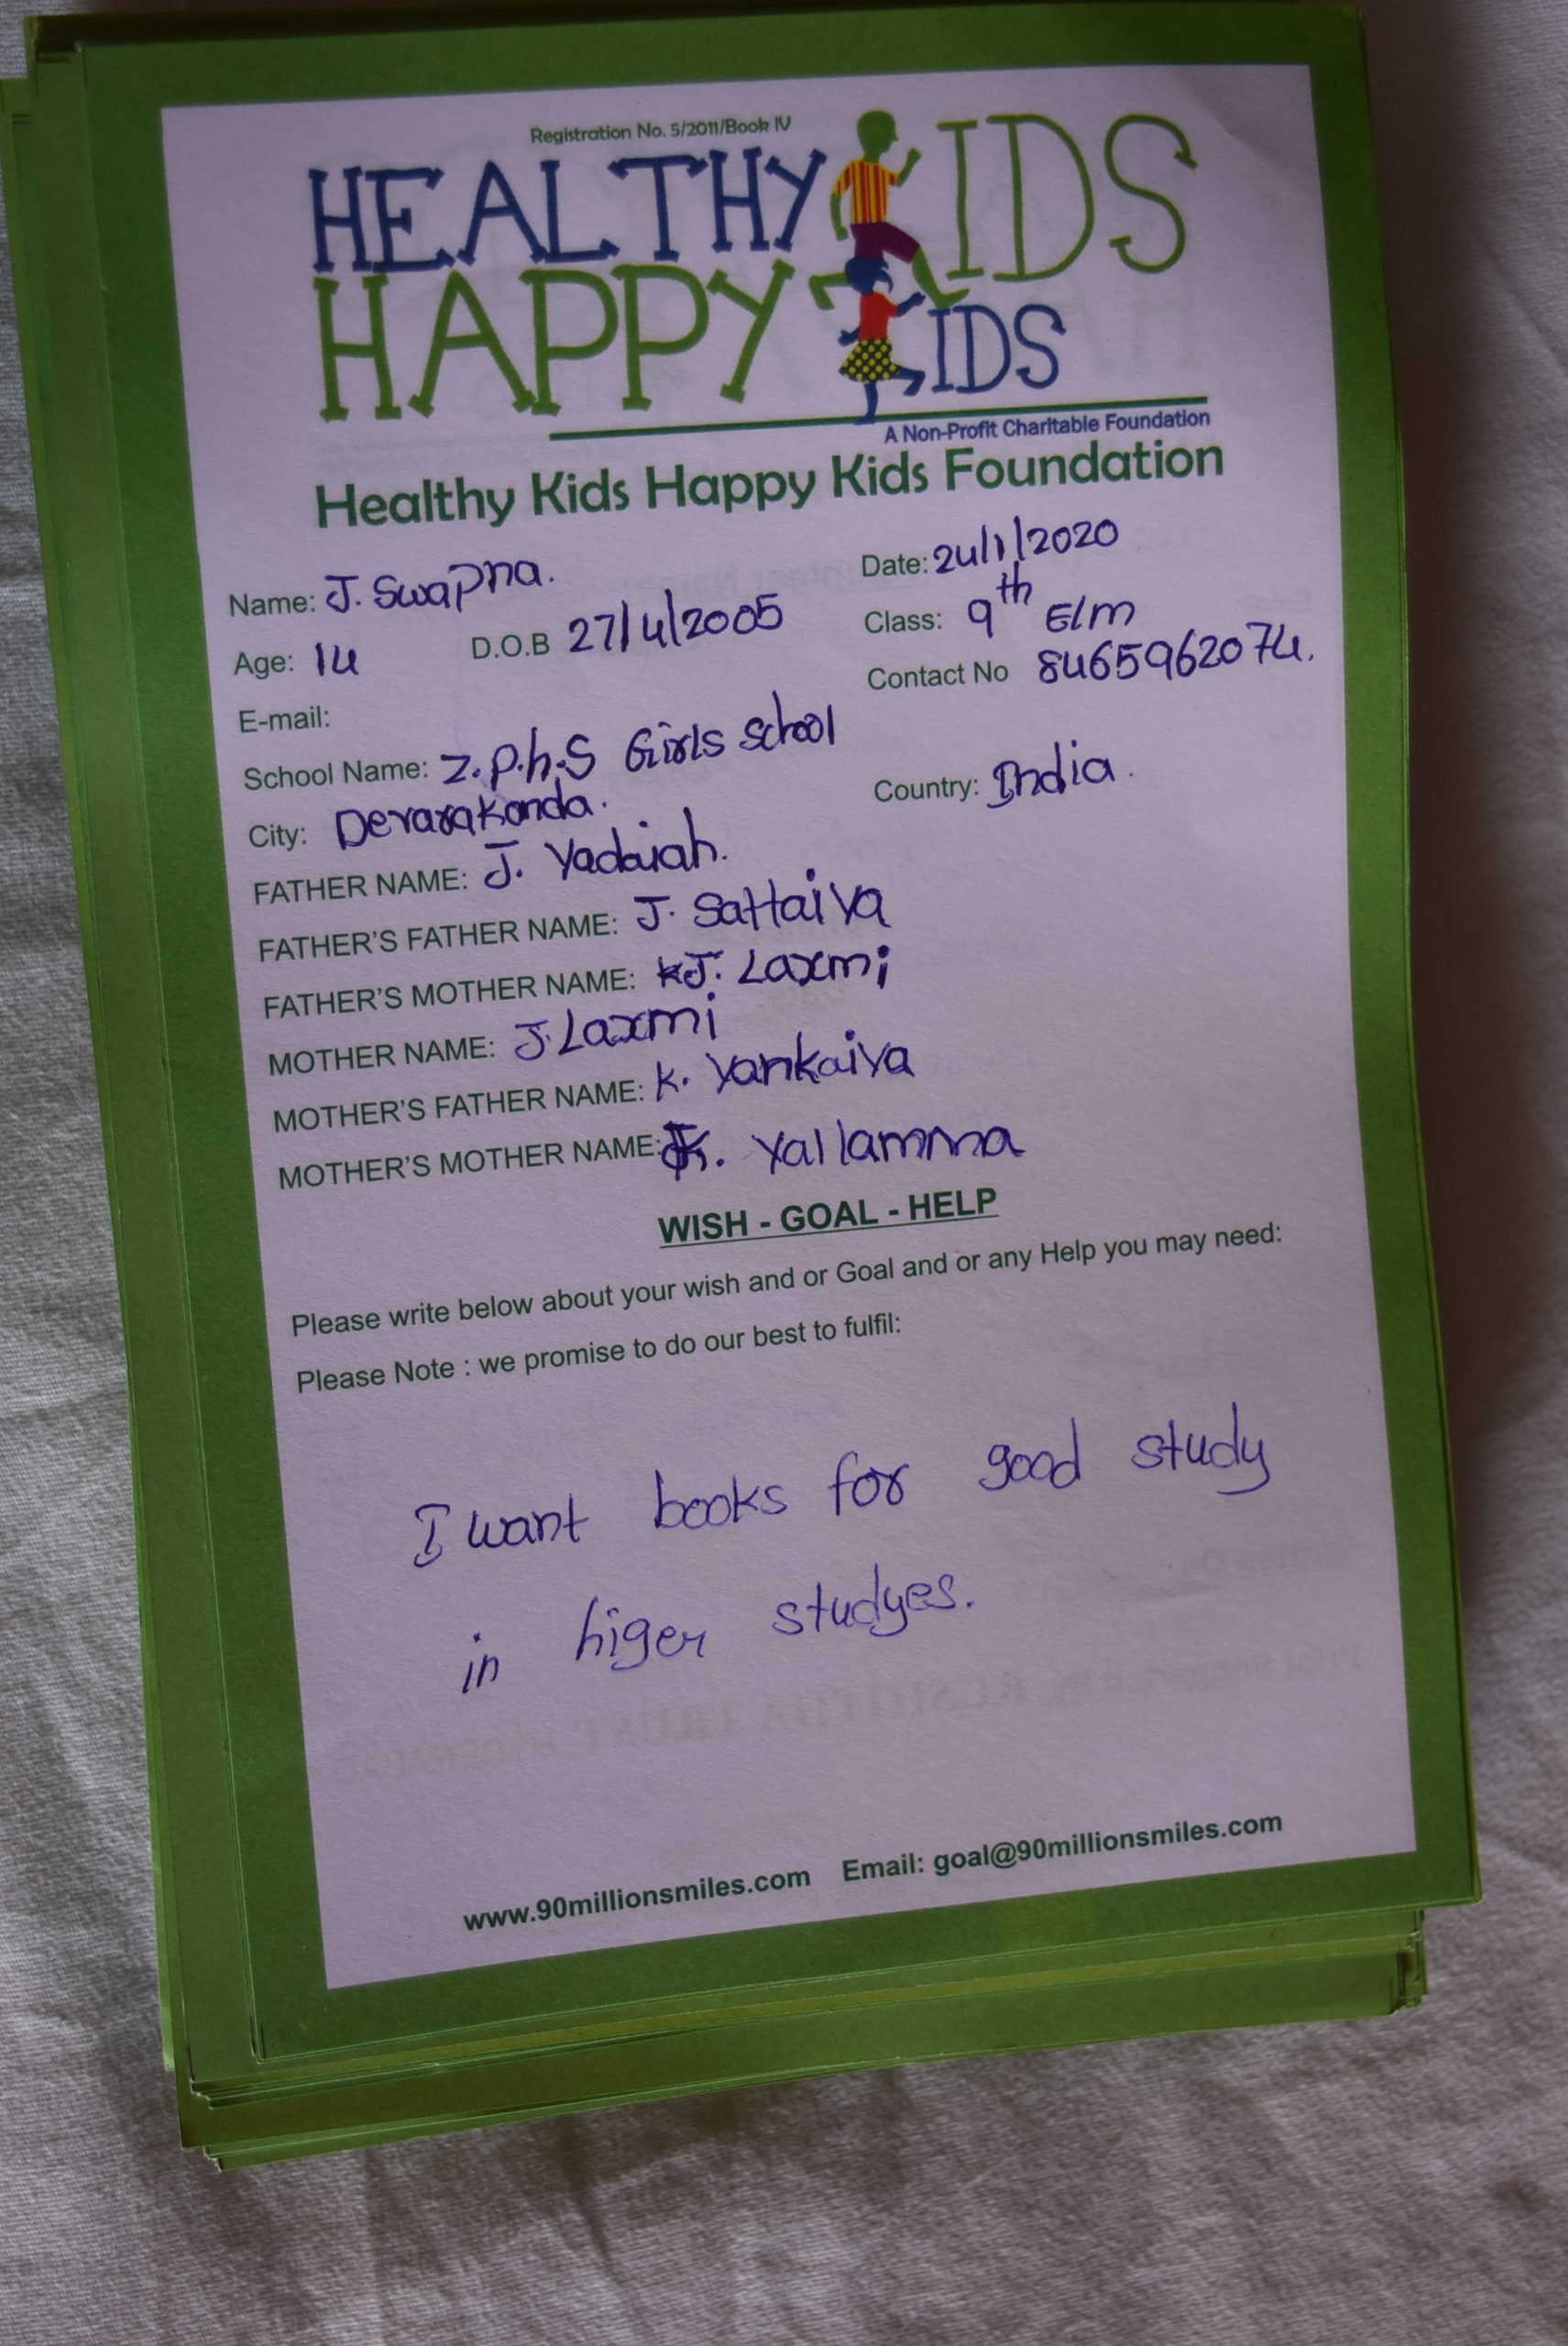 Registration No. 5/2011/Book IV
HEALTHY KIDS
HAPPY KIDS
A Non-Profit Charitable Foundation
Healthy Kids Happy Kids Foundation
Name: J. Swapna. Date: 24/1/2020
Age: 14 D.O.B 27/4/2005 Class: 9th E/m
E-mail: Contact No 8465962074.
School Name: Z.P.h.S Girls School
City: Devarakonda. Country: India.
FATHER NAME: J. Yadaiah.
FATHER'S FATHER NAME: J. Sattaiya
FATHER'S MOTHER NAME: J. Laxmi
MOTHER NAME: J. Laxmi
MOTHER'S FATHER NAME: K. Yankaiya
MOTHER'S MOTHER NAME: K. Yallamma
WISH - GOAL - HELP
Please write below about your wish and or Goal and or any Help you may need:
Please Note : we promise to do our best to fulfil:
I want books for good study
in higer studyes.
www.90millionsmiles.com Email: goal@90millionsmiles.com